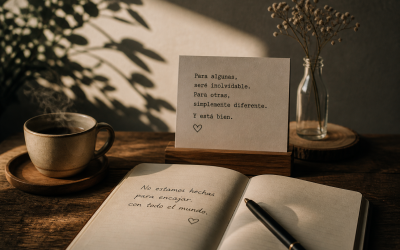 Para algunas,
seré inolvidable.
Para otras,
simplemente diferente.
Y está bien.
No estamos hechas
para encajar
con todo el mundo.